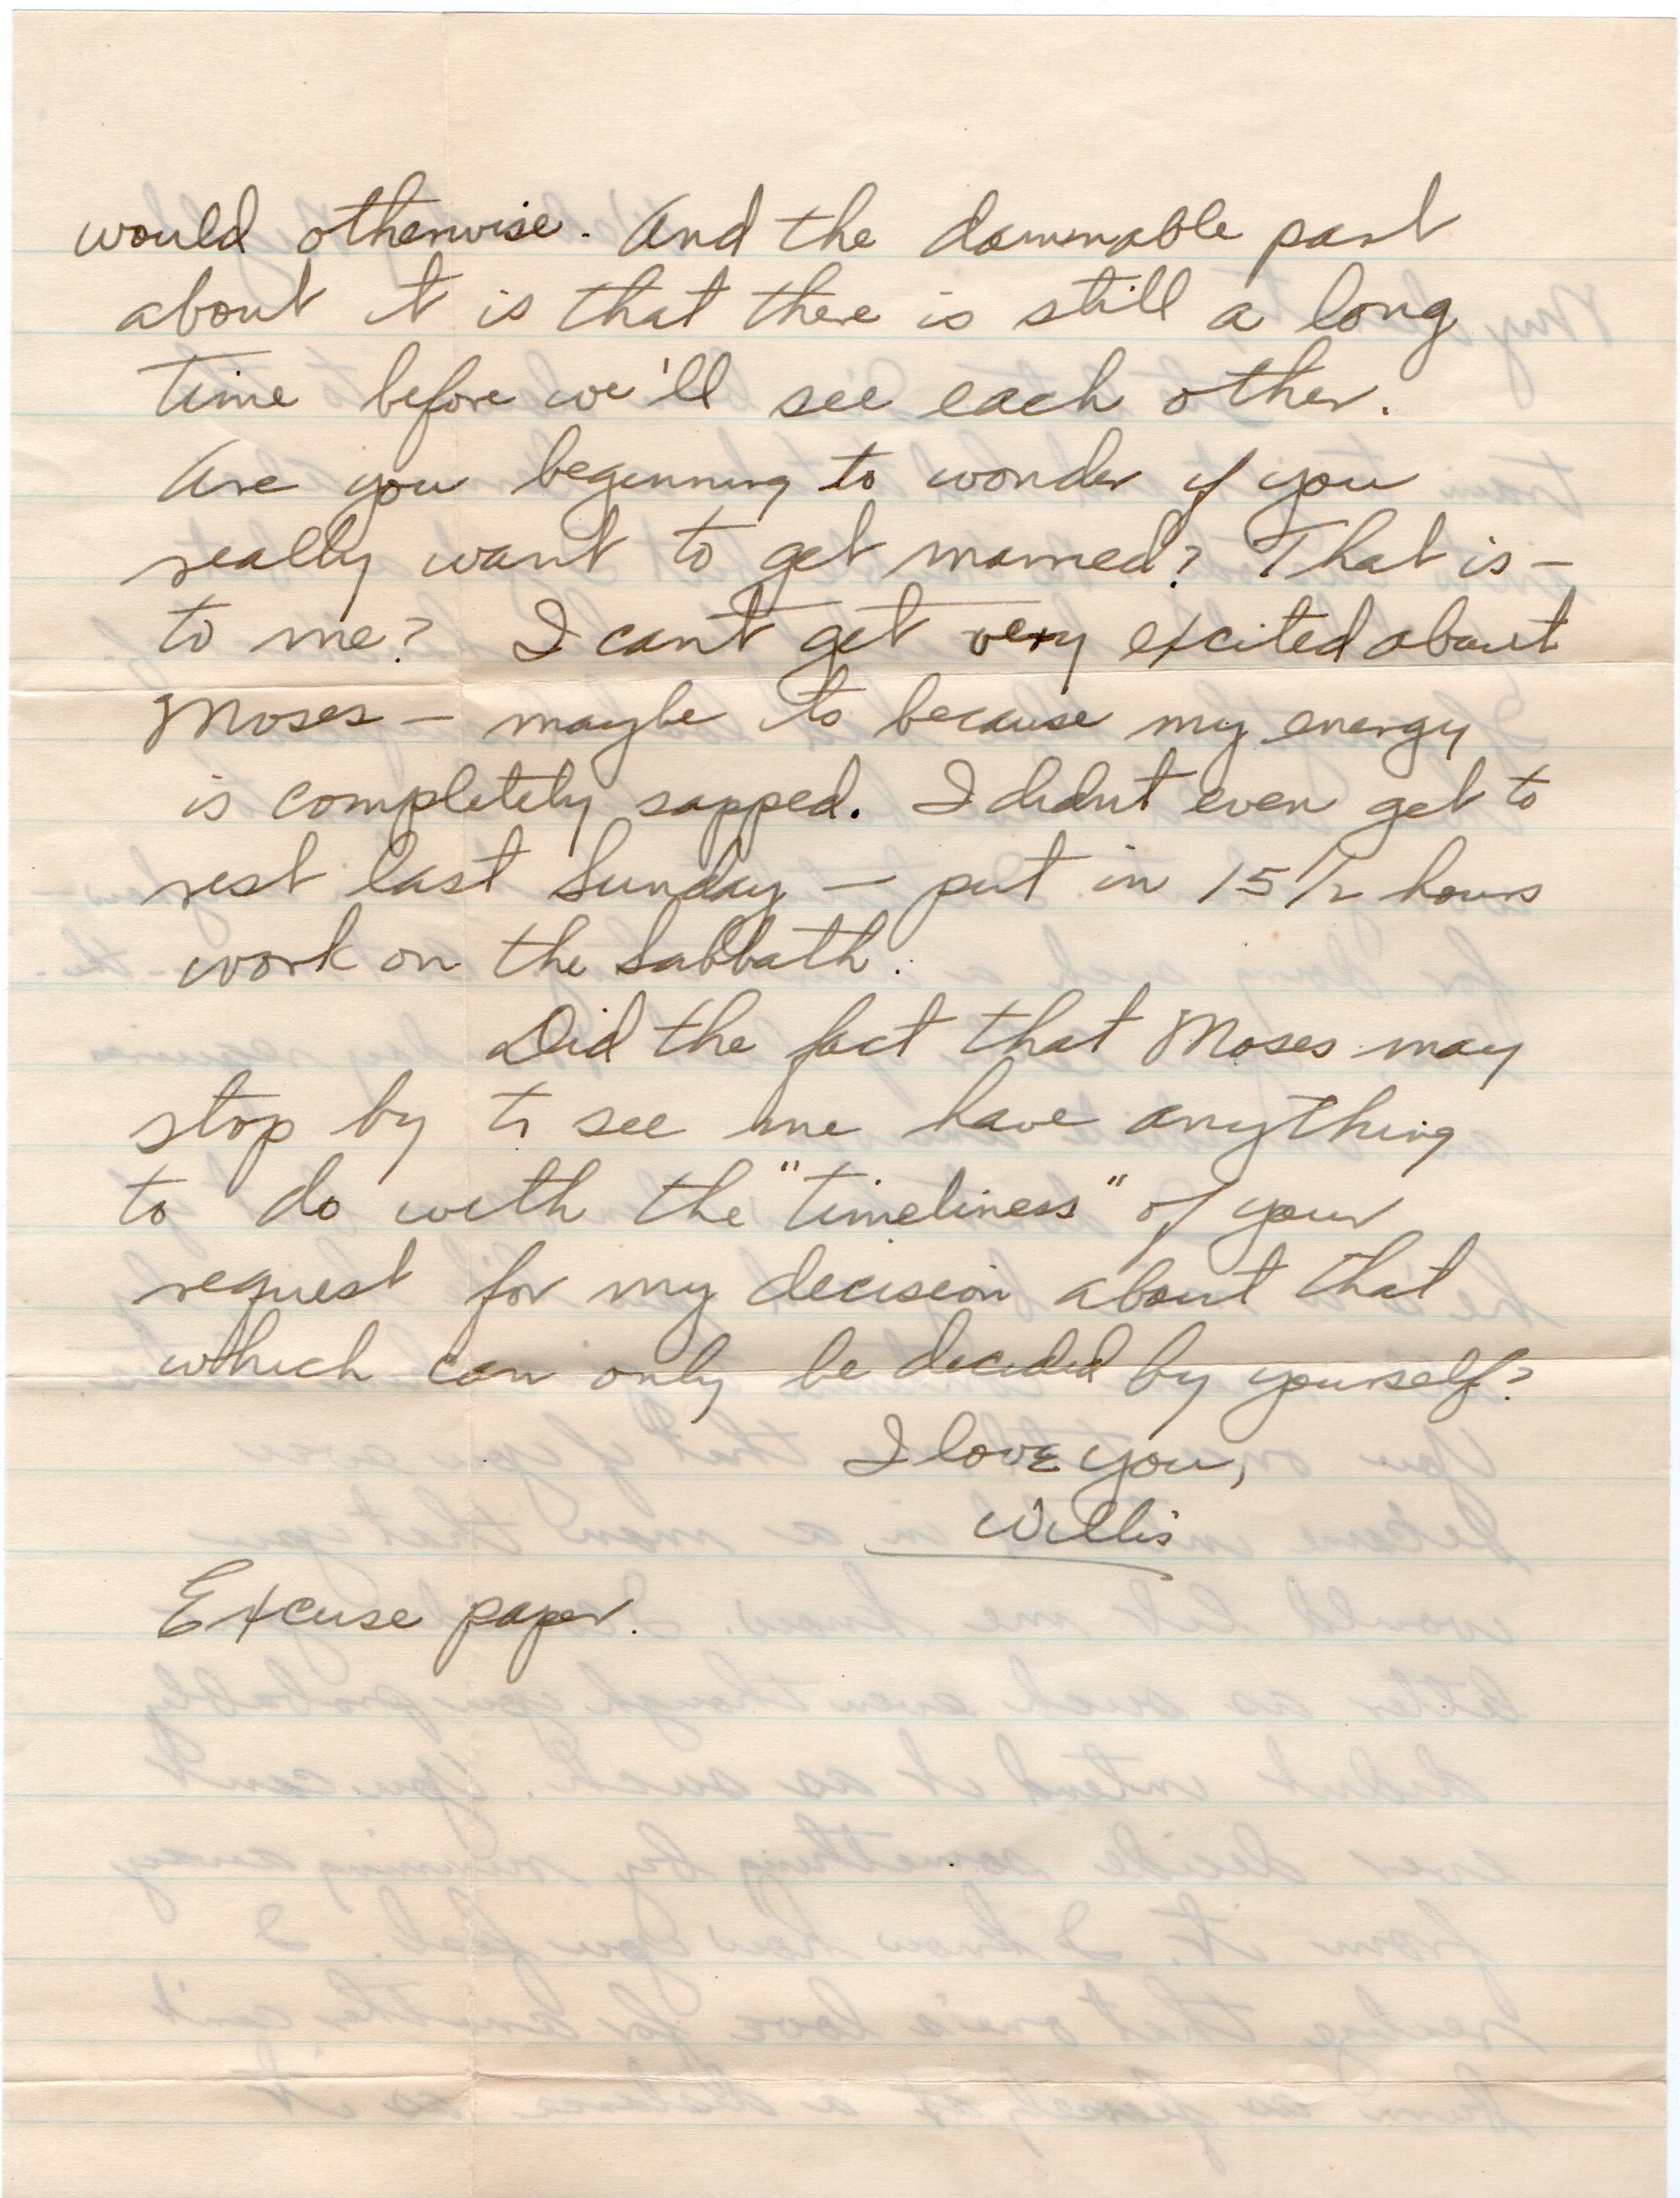 would otherwise. And the damnable part
about it is that there is still a long
time before we'll see each other.
Are you beginning to wonder if you
really want to get married? That is —
to me? I can't get very excited about
Moses — maybe its because my energy
is completely sapped. I didn't even get to
rest last Sunday — put in 15 1/2 hours
work on the Sabbath.
Did the fact that Moses may
stop by to see me have anything
to do with the "timeliness" of your
request for my decision about that
which can only be decided by yourself?
I love you,
Willis
Excuse paper.